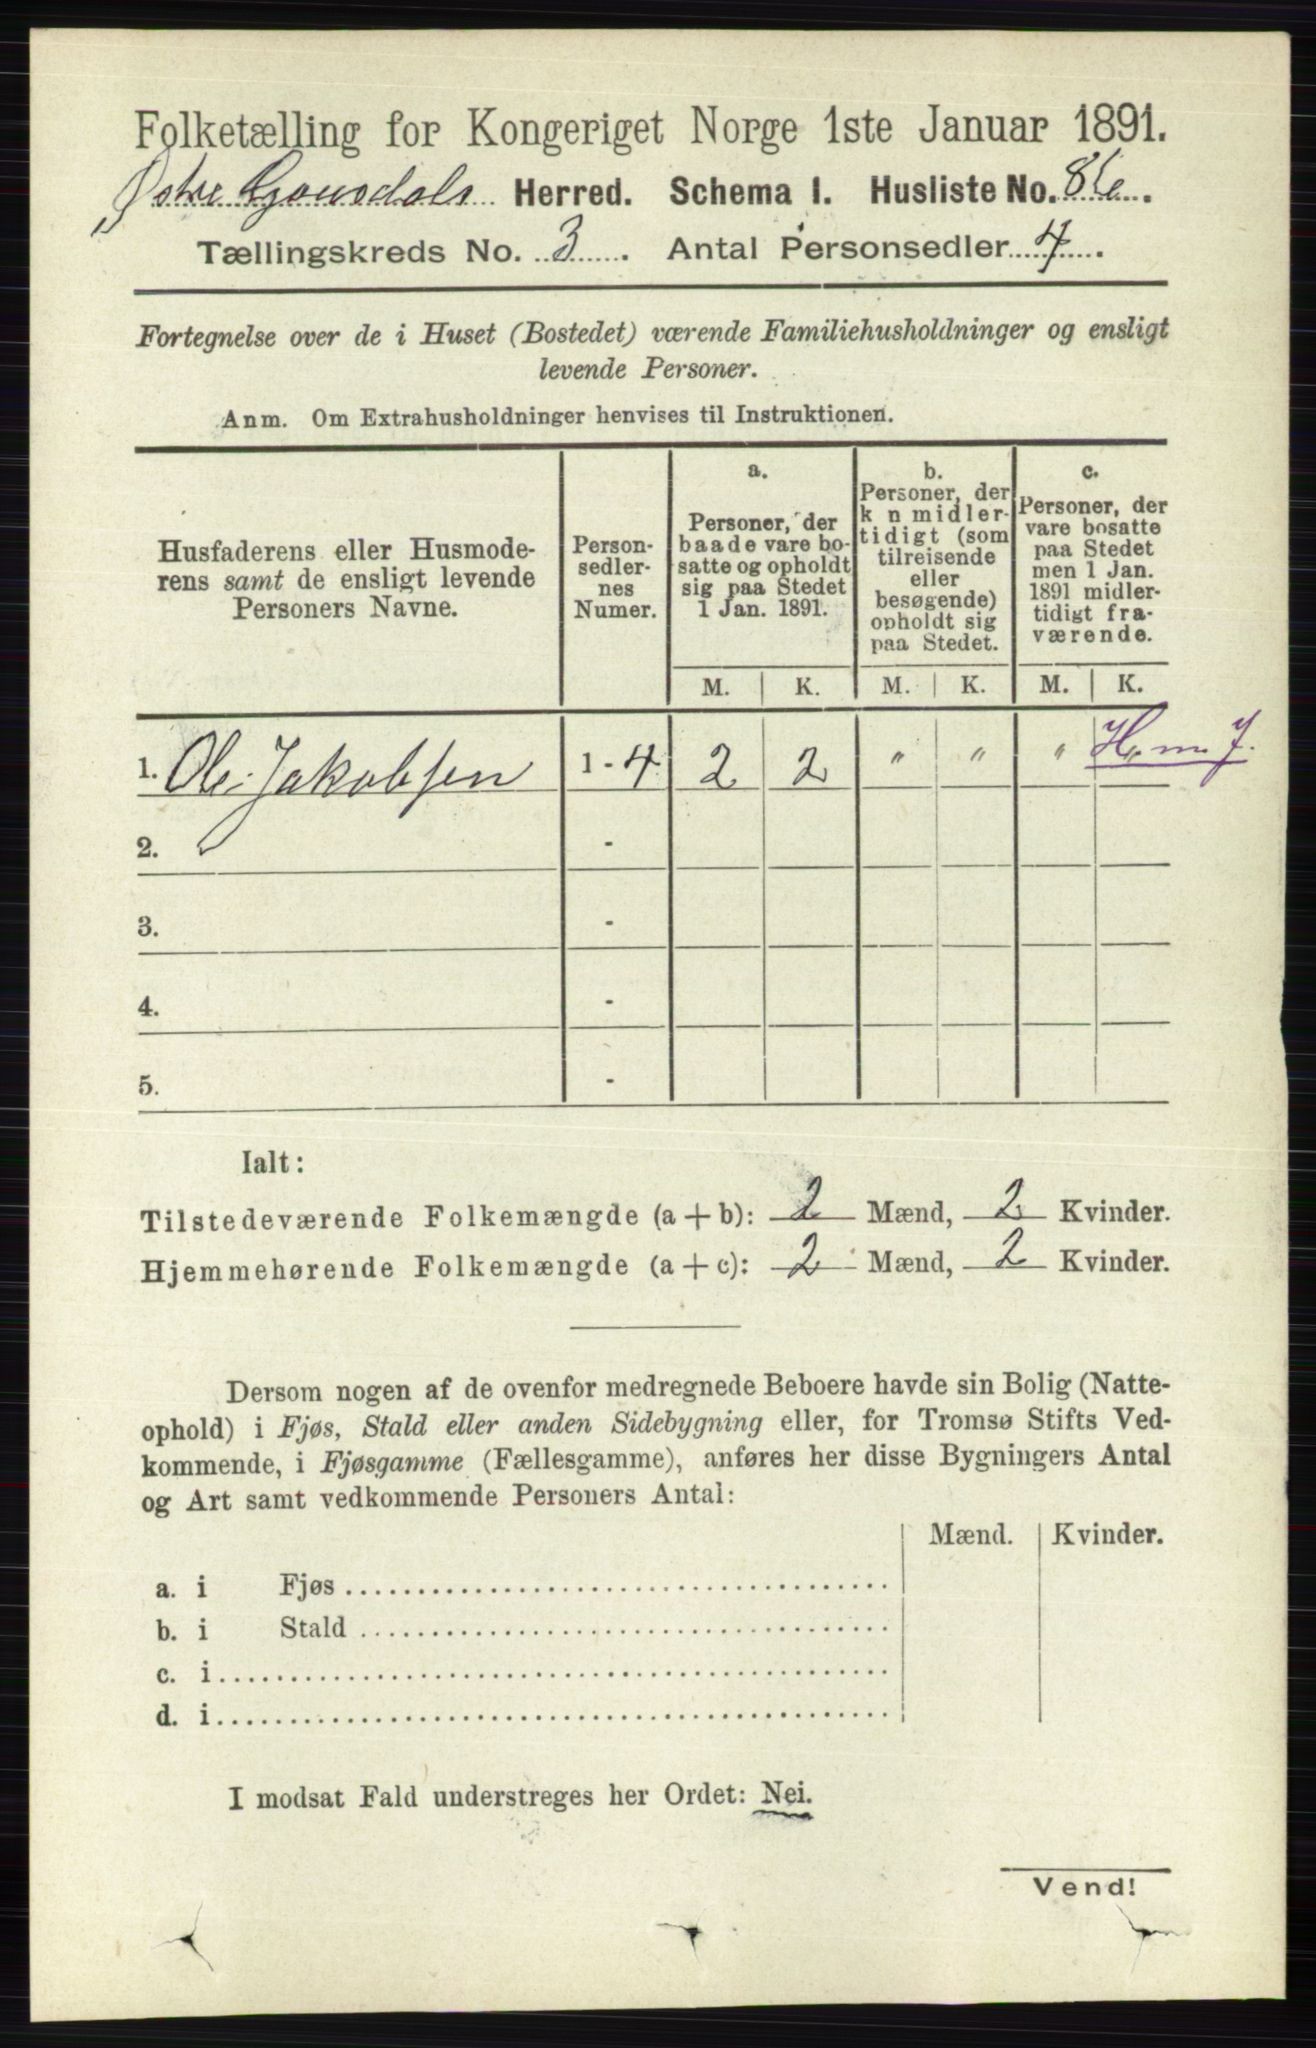 Folketælling for Kongeriget Norge 1ste Januar 1891.
Østre Gausdals Herred. Schema I. Husliste No. 86.
Tællingskreds No. 3. Antal Personsedler 4.
Fortegnelse over de i Huset (Bostedet) værende Familiehusholdninger og ensligt
levende Personer.
Anm. Om Extrahusholdninger henvises til Instruktionen.
Husfaderens eller Husmode-
rens samt de ensligt levende
Personers Navne.
Person-
sedler-
nes
Numer.
a.
Personer, der
baade vare bo-
satte og opholdt
sig paa Stedet
1 Jan. 1891.
b.
Personer, der
k n midler-
tidigt (som
tilreisende
eller
besøgende)
opholdt sig
paa Stedet.
c.
Personer, der
vare bosatte
paa Stedet
men 1 Jan.
1891 midler-
tidigt fra-
værende.
M. K. M. K. M. K.
1. Ole Jakobsen 1 - 4 2 2 " " "
2. -
3. -
4. -
5. -
Ialt:
Tilstedeværende Folkemængde (a + b): 2 Mænd, 2 Kvinder.
Hjemmehørende Folkemængde (a + c): 2 Mænd, 2 Kvinder.
Dersom nogen af de ovenfor medregnede Beboere havde sin Bolig (Natte-
ophold) i Fjøs, Stald eller anden Sidebygning eller, for Tromsø Stifts Ved-
kommende, i Fjøsgamme (Fællesgamme), anføres her disse Bygningers Antal
og Art samt vedkommende Personers Antal:
Mænd. Kvinder.
a. i Fjøs
b. i Stald
c. i
d. i
I modsat Fald understreges her Ordet: Nei.
Vend!